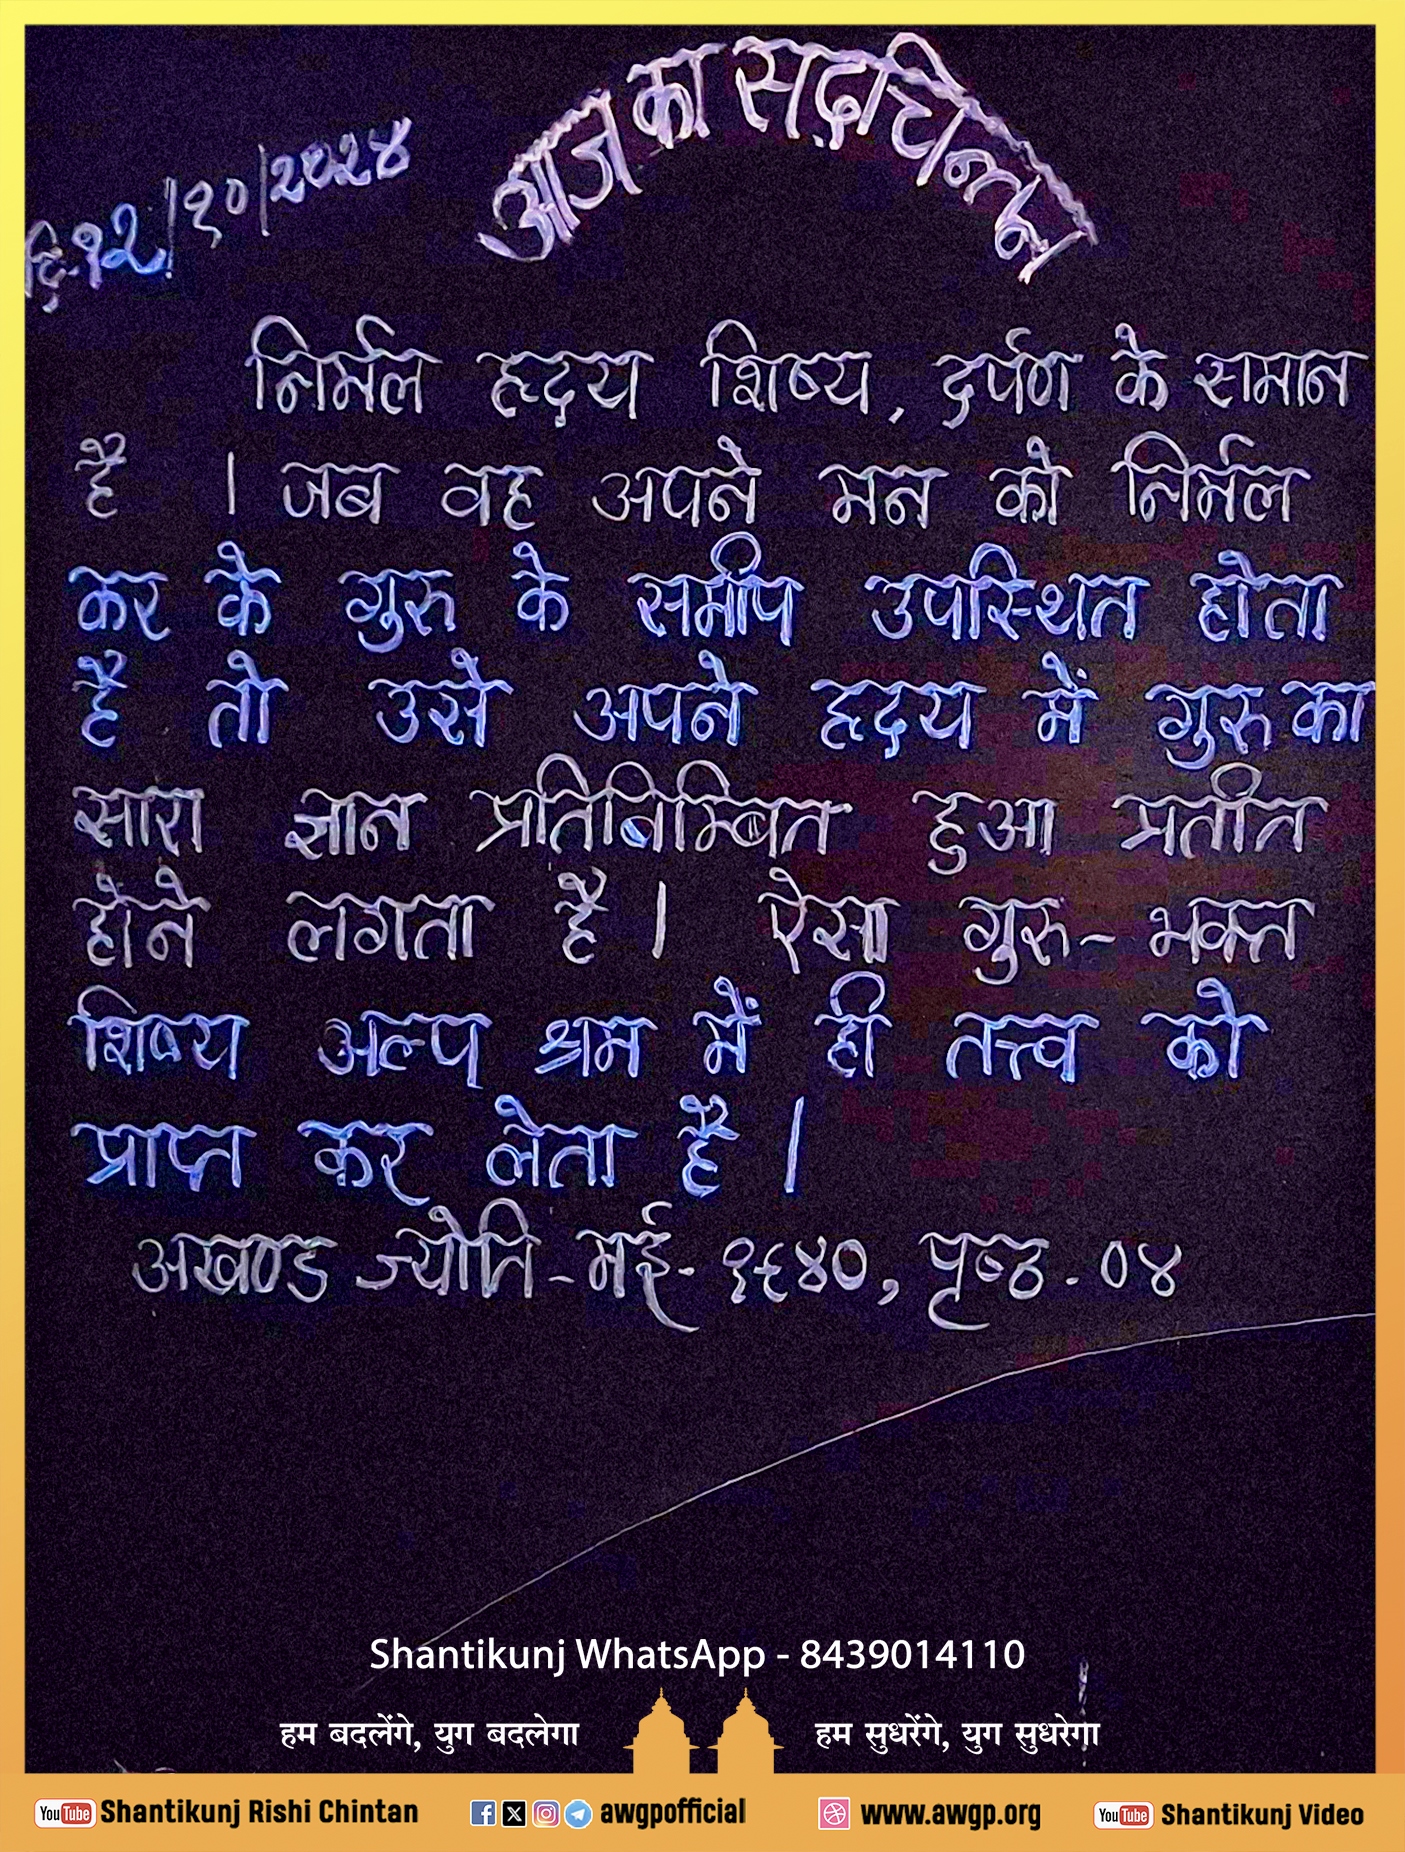 आज का सद्चिन्तन
दि. १२/१०/२०२४
निर्मल हृदय शिष्य, दर्पण के समान
है । जब वह अपने मन को निर्मल
कर के गुरु के समीप उपस्थित होता
है तो उसे अपने हृदय में गुरु का
सारा ज्ञान प्रतिबिम्बित हुआ प्रतीत
होने लगता है । ऐसा गुरु-भक्त
शिष्य अल्प श्रम में ही तत्त्व को
प्राप्त कर लेता है ।
अखण्ड ज्योति-मई-१९४०, पृष्ठ-०४
Shantikunj WhatsApp - 8439014110
हम बदलेंगे, युग बदलेगा हम सुधरेंगे, युग सुधरेगा
YouTube Shantikunj Rishi Chintan awgpofficial www.awgp.org YouTube Shantikunj Video